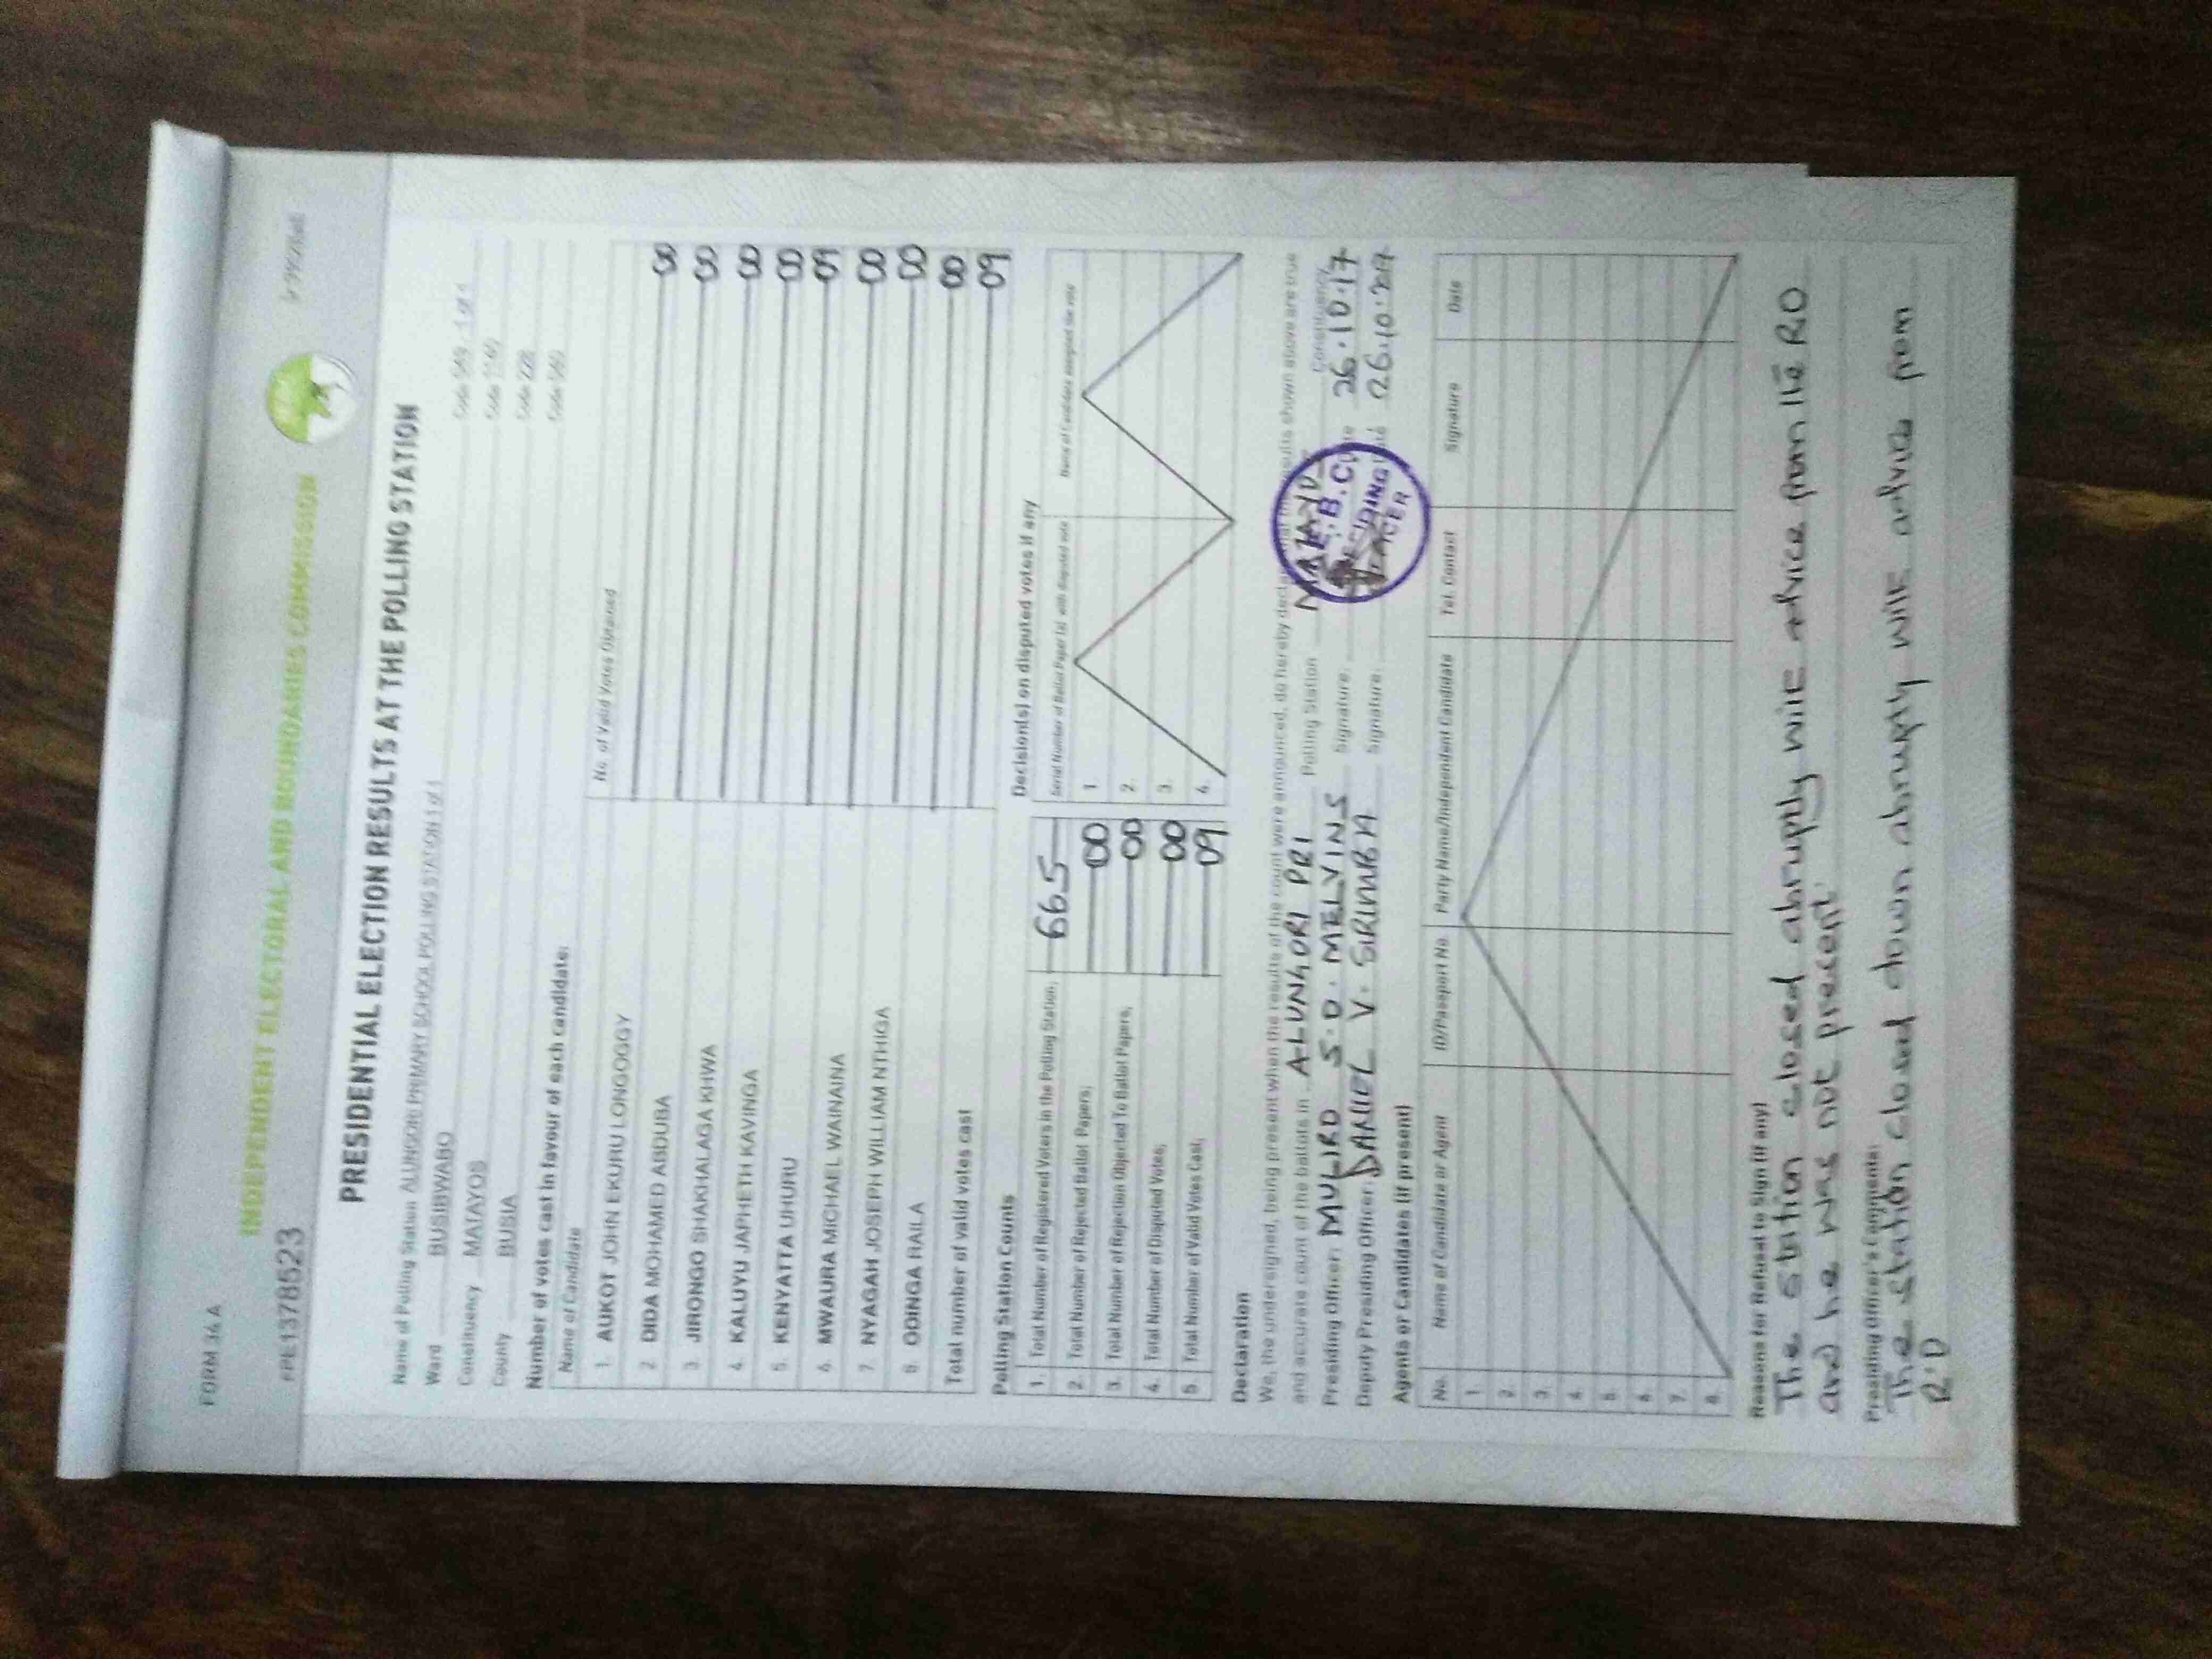 FORM 34 A
INDEPENDENT ELECTORAL AND BOUNDARIES COMMISSION
FPE1378523
PRESIDENTIAL ELECTION RESULTS AT THE POLLING STATION
Name of Polling Station ALUNGORI PRIMARY SCHOOL POLLING STATION 1 of 1
Ward BUSIBWABO
Constituency MATAYOS
County BUSIA
Number of votes cast in favour of each candidate:
Name of Candidate No. of Valid Votes Obtained
1. AUKOT JOHN EKURU LONGOGGY 00
2. DIDA MOHAMED ABDUBA 00
3. JIRONGO SHAKHALAGA KHWA 00
4. KALUYU JAPHETH KAVINGA 00
5. KENYATTA UHURU
6. MWAURA MICHAEL WAINAINA 00
7. NYAGAH JOSEPH WILLIAM NTHIGA 00
8. ODINGA RAILA
Total number of valid votes cast 09
Polling Station Counts
1. Total Number of Registered Voters in the Polling Station; 665
2. Total Number of Rejected Ballot Papers; 00
3. Total Number of Rejection Objected To Ballot Papers; 00
4. Total Number of Disputed Votes; 00
5. Total Number of Valid Votes Cast; 09
Decision(s) on disputed votes if any
Serial Number of Ballot Paper (s) with disputed vote Name of Candidate assigned the vote
1.
2.
3.
4.
Declaration
We, the undersigned, being present when the results of the count were announced, do hereby declare that the results shown above are true
and accurate count of the ballots in ALUNGORI PRI Polling Station MATAYOS Constituency
Presiding Officer: MULIRO S.O. MELVINS Signature: Date 26.10.17
Deputy Presiding Officer: DANIEL V. SIRIMBA Signature: Date 26.10.2017
I.E.B.C
PRESIDING
OFFICER
Agents or Candidates (if present)
No. Name of Candidate or Agent ID/Passport No Party Name/Independent Candidate Tel. Contact Signature Date
1.
2.
3.
4.
5.
6.
7.
8.
Reasons for Refusal to Sign (if any)
The station closed abruptly with advice from the RO
and he was not present.
Presiding Officer's Comments:
The station closed down abruptly with advice from
R.O